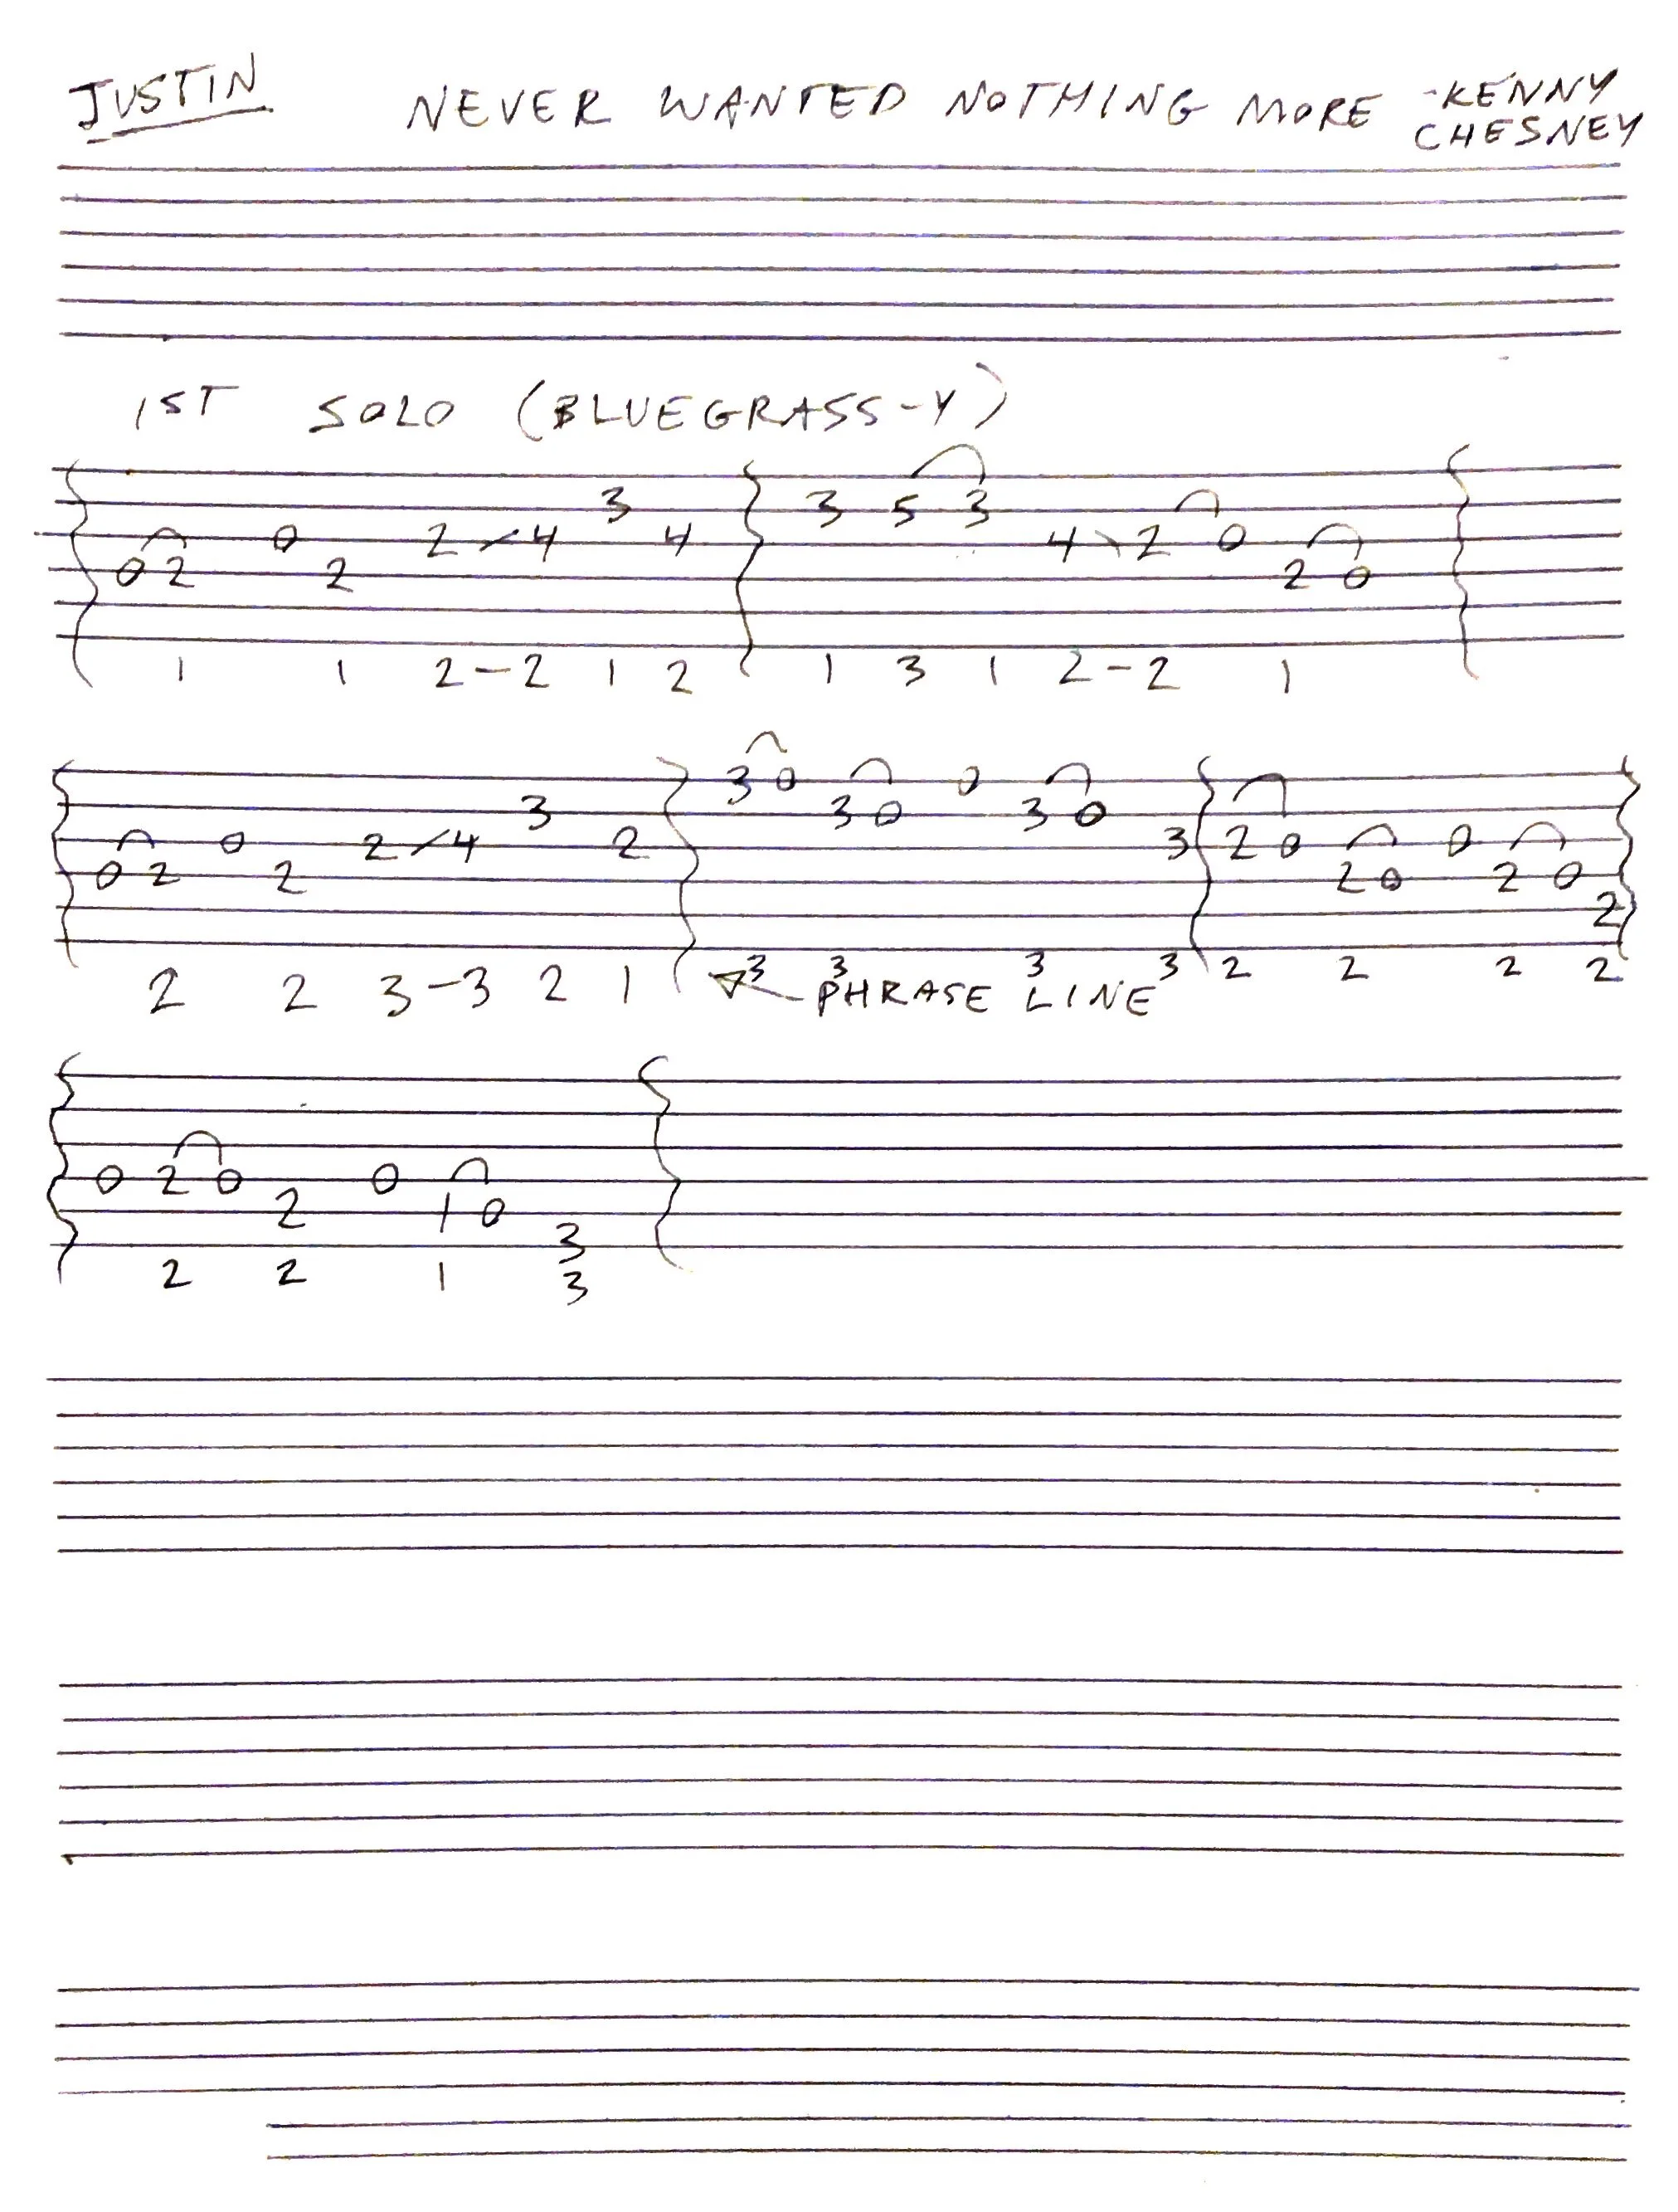 JUSTIN NEVER WANTED NOTHING MORE -KENNY CHESNEY
1ST SOLO (BLUEGRASS-Y)
3 3 5 3
0 2 4 4 4 2 0
0 2 2 2 0
1 1 2-2 1 2 1 3 1 2-2 1
3 0 0
3 3 0 3 0
0 2 4 2 3 2 0 0
0 2 2 2 0 2 0
2
2 2 3-3 2 1 3 3 3 3 2 2 2 2
PHRASE LINE
0 2 0 0
2 1 0
3
2 2 1 3